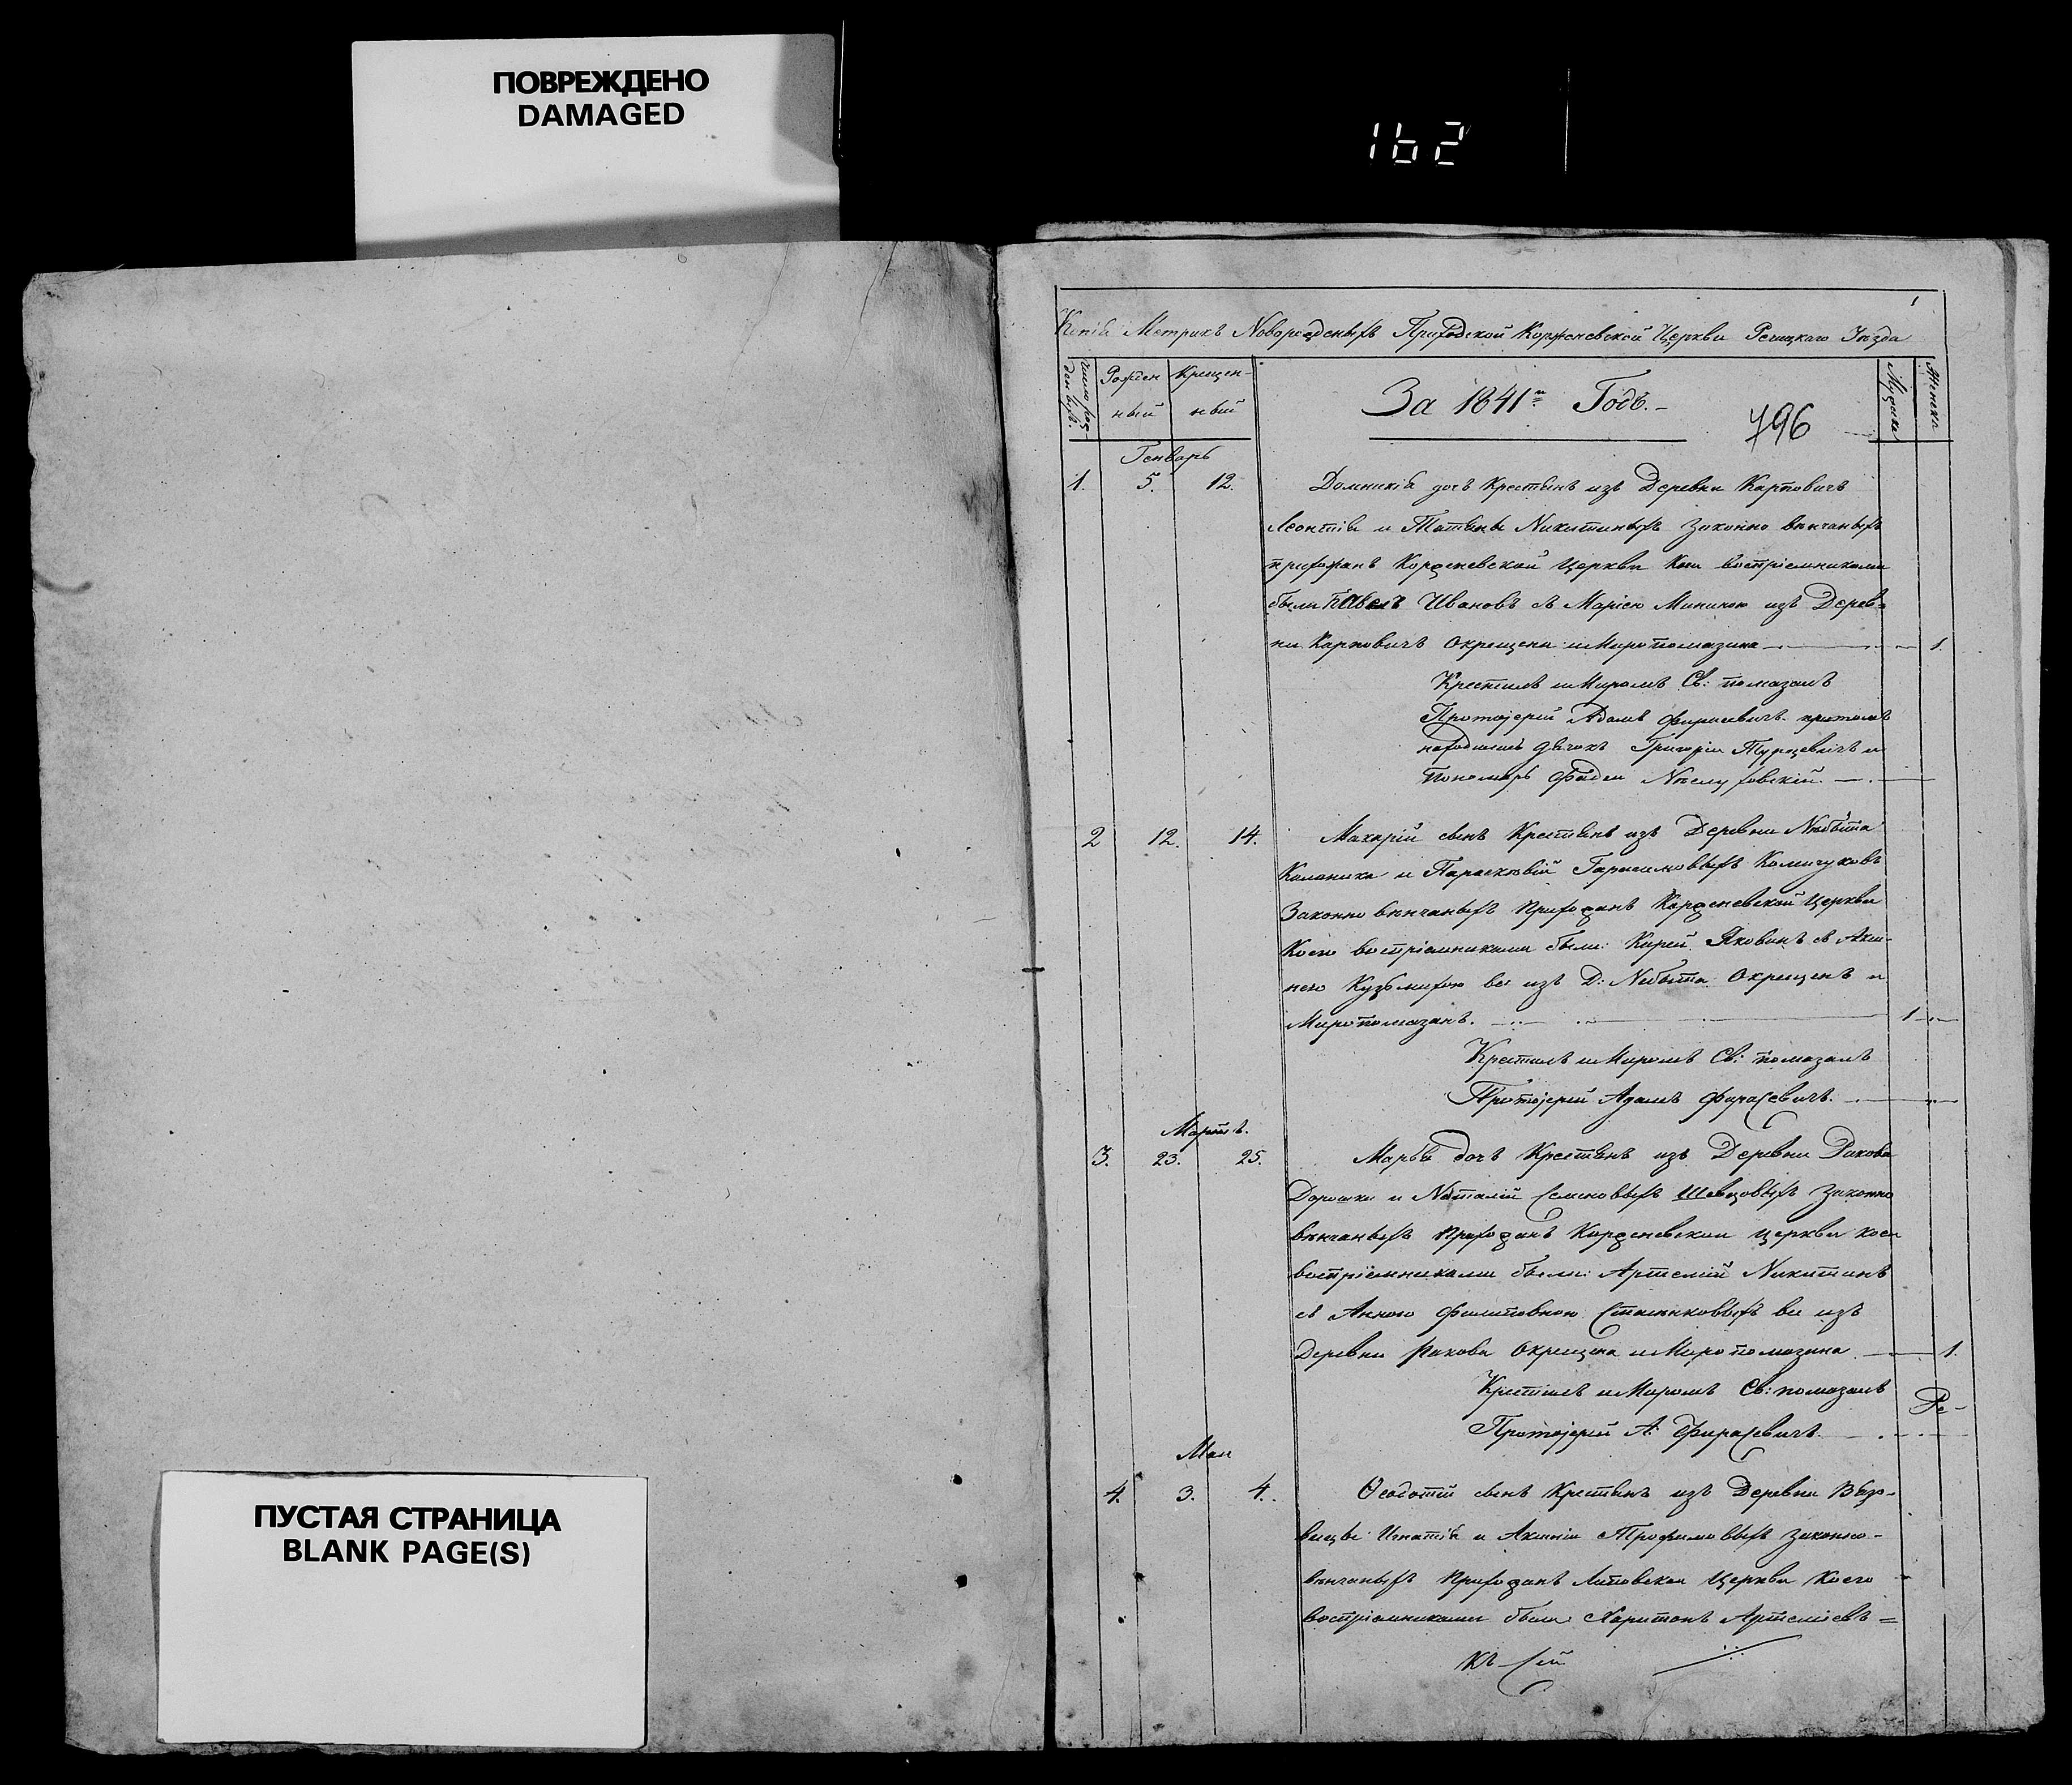 ПОВРЕЖДЕНО
DAMAGED
162
1
Копія Метрикъ Новорожденыхъ Приходской Корженевской Церкви Речицкаго Уѣзда
Число рож-
деныхъ.
Рожден
ный
Крещен-
ный
За 1841й Годъ.-
796
Мужска
Женска
Генварь
1. 5. 12. Домникія дочь Крестянъ изъ Деревни Карповичъ
Леонтія и Татяны Никитиныхъ законно вѣнчаныхъ
прихожанъ Корженевской Церкви Коей воспріемниками
были Павелъ Ивановъ съ Маріею Мининою изъ Дерев=
ни Карповичъ Окрещена и Миропомазана 1.
Крестилъ и Миромъ Св: помазалъ
Протоіерей Адамъ Фирасевичъ при томъ
находились дьячокъ Григорій Турцевичъ и
Пономарь Фадей
2 12. 14. Макарій сынъ Крестянъ изъ Деревни Небыта
Калиника и Парасковіи Гарасимовыхъ
Законно вѣнчаныхъ Прихожанъ Корженевской Церкви
Коего воспріемниками были: Кирей Яковинъ съ Акси-
нею все изъ Д: Небыта Окрещенъ и
Миропомазанъ. 1
Крестилъ и Миромъ Св: помазалъ
Протоіерей Адамъ Фирасевичъ.
Мартъ.
3. 23. 25. Марья дочь Крестянъ изъ Деревни Ракова
Дорошки и Наталіи Семеновыхъ Шевцовыхъ Законно
вѣнчаныхъ Прихожанъ Корженевской церкви коей
воспріемниками были: Артемій Никитинъ
съ Анною Филиповною все изъ
Деревни Ракова Окрещена и Миропомазана 1.
Крестилъ и Миромъ Св: помазалъ
Протоіерей А: Фирасевичъ
Ре-
Маи
4. 3. 4. Ѳеодотій сынъ Крестянъ изъ Деревни
Игнатія и Аксиніи Трофимовыхъ законно-
вѣнчаныхъ Прихожанъ Липовской Церкви Коего
воспріемниками были: Харитонъ Артеміевъ =
ПУСТАЯ СТРАНИЦА
BLANK PAGE(S)